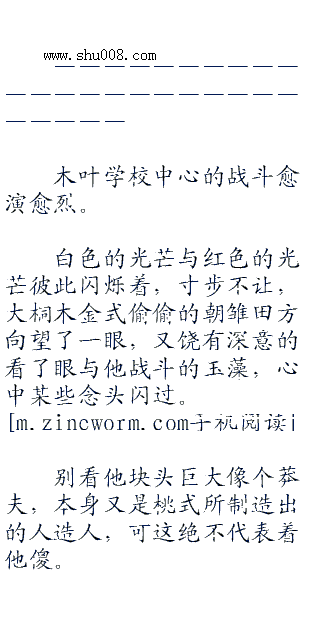 www.shu008.com
— — — — — — — — — —
— — — — — — — — — — — —
— — — — —
木叶学校中心的战斗愈
演愈烈。
白色的光芒与红色的光
芒彼此闪烁着，寸步不让，
大桐木金式偷偷的朝雏田方
向望了一眼，又饶有深意的
看了眼与他战斗的玉藻，心
中某些念头闪过。
[m.zincworm.com手机阅读|
别看他块头巨大像个莽
夫，本身又是桃式所制造出
的人造人，可这绝不代表着
他傻。